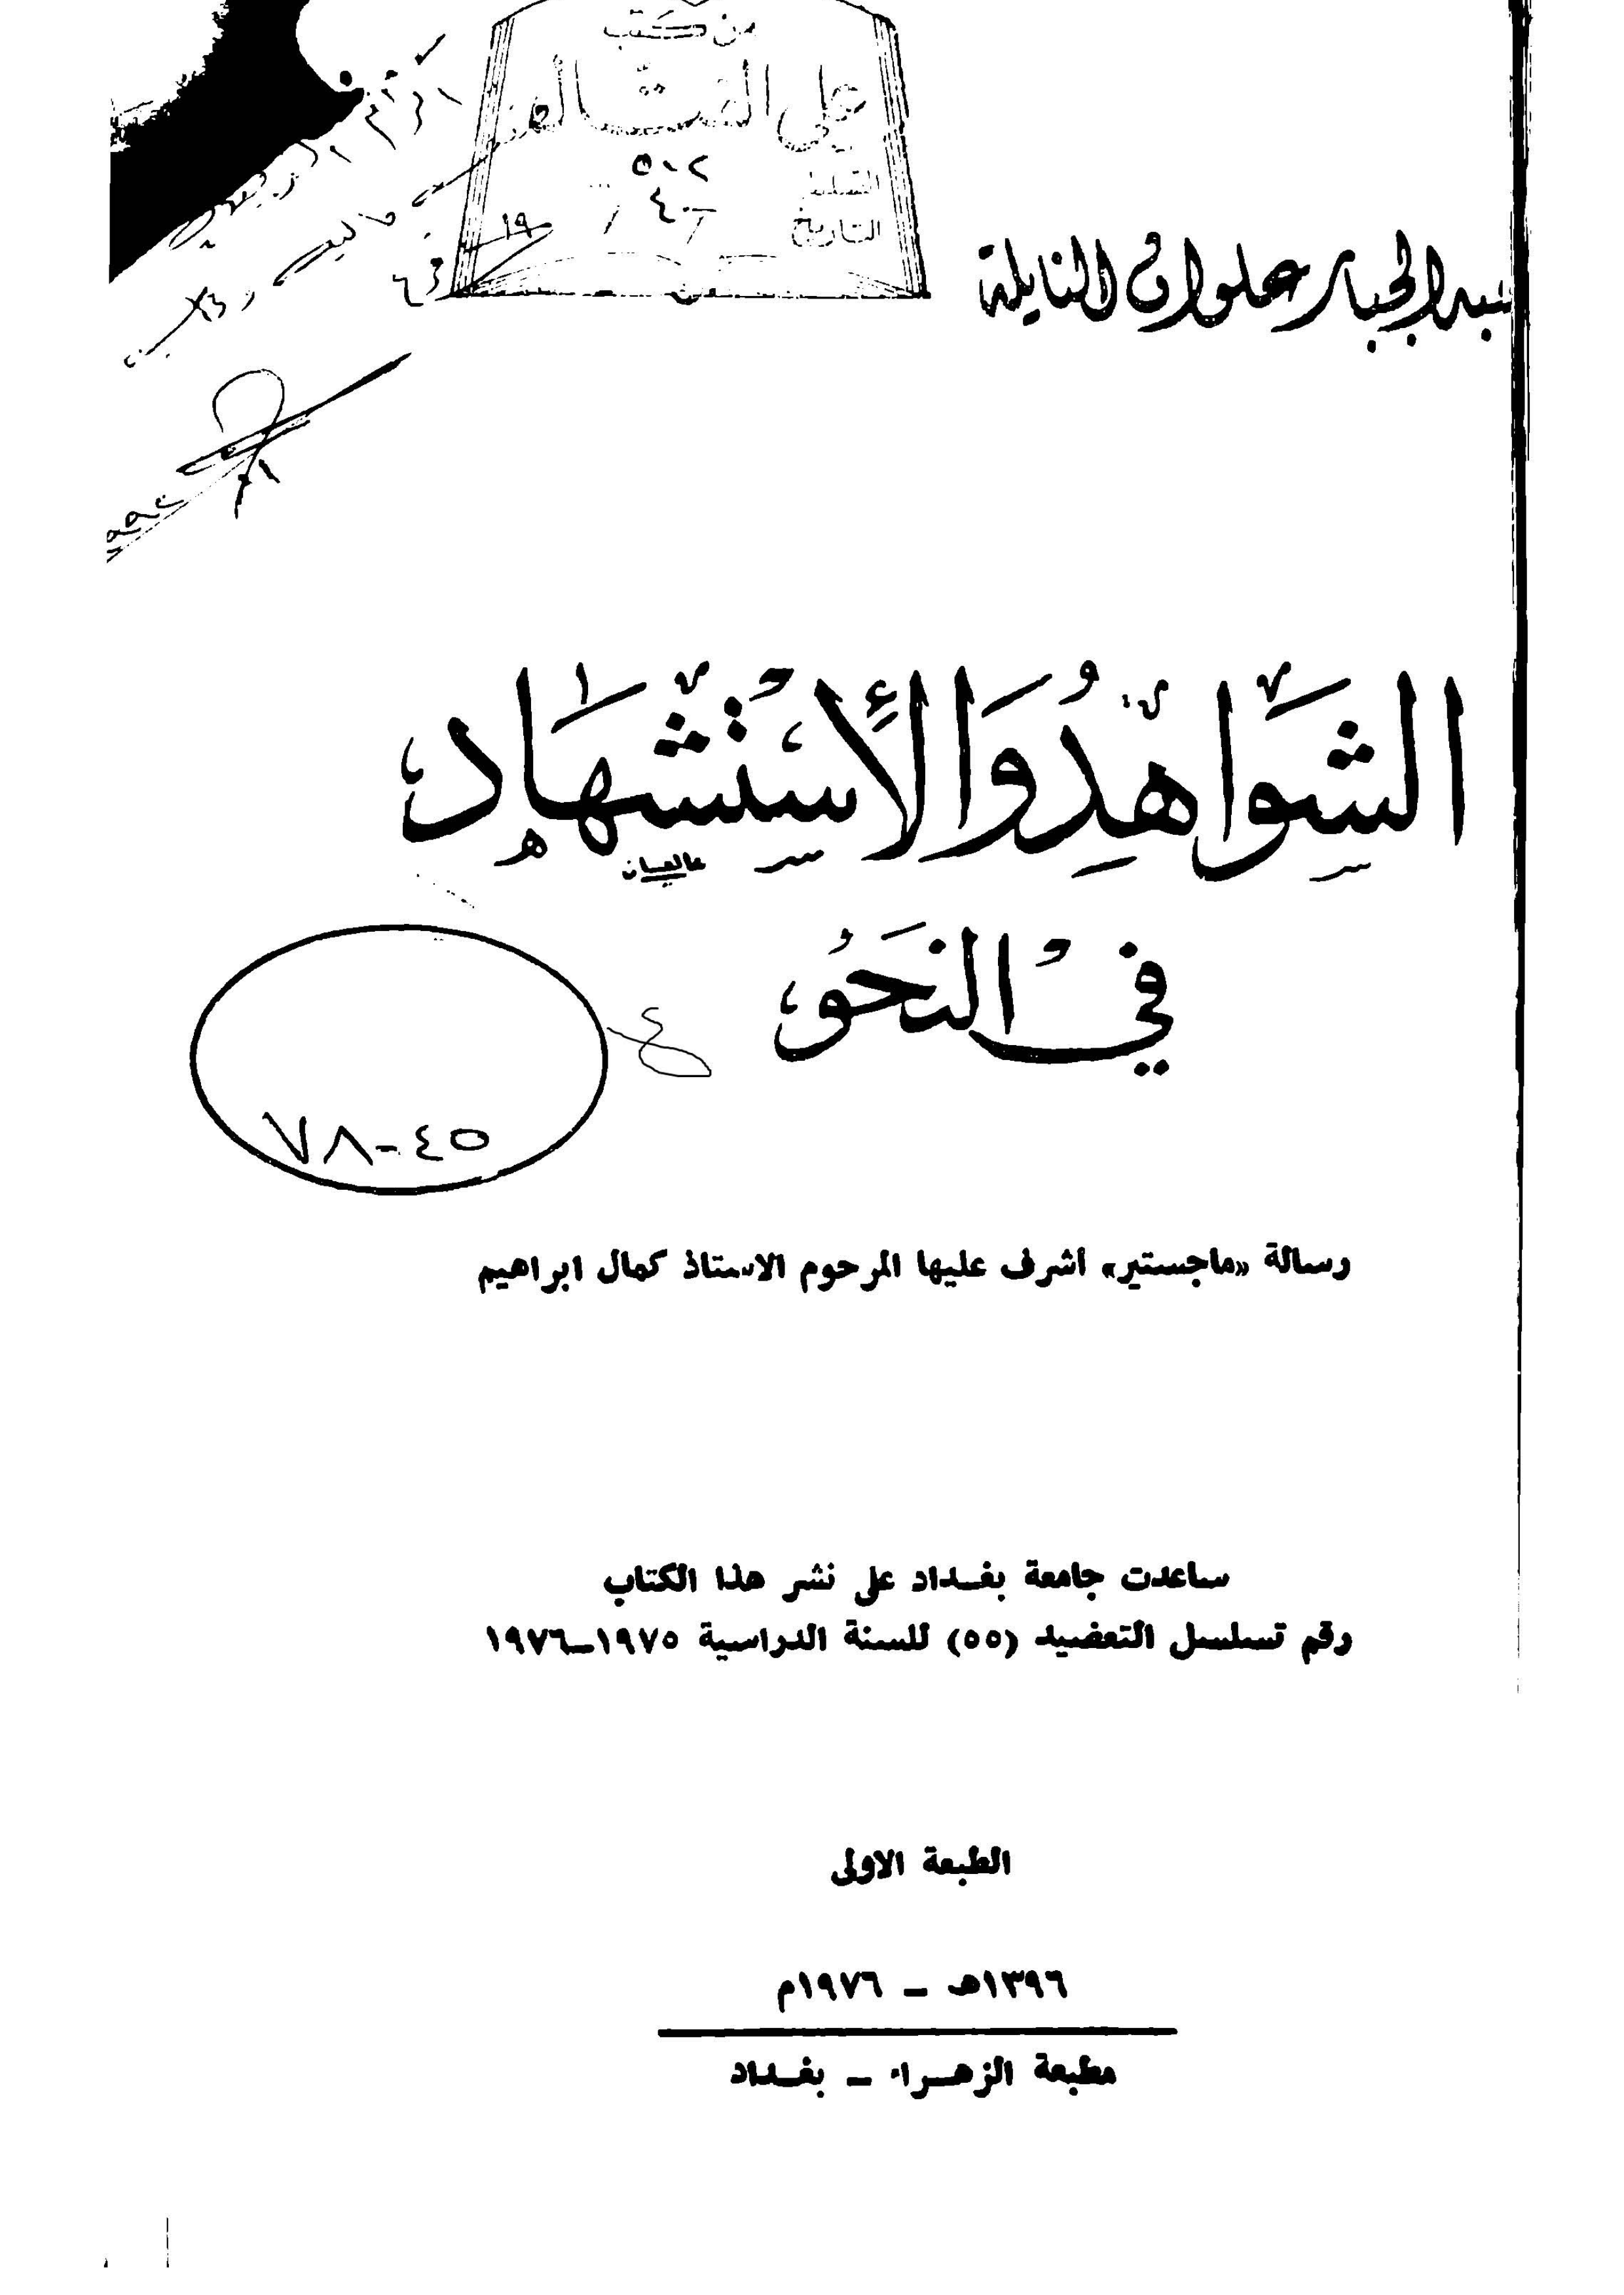 من كتب
علي
٥٠٢
التسلسل
التاريخ
١٩
عبد الجبار علوان النايلة
الشَّوَاهِدُ وَالإِسْتِشْهَادُ
فِي النَّحْو
٧٨-٤٥
رسالة «ماجستير» اشرف عليها المرحوم الاستاذ كمال ابراهيم
ساعدت جامعة بغداد على نشر هذا الكتاب
رقم تسلسل التعضيد (٥٥) للسنة الدراسية ١٩٧٥-١٩٧٦
الطبعة الاولى
١٣٩٦هـ - ١٩٧٦م
مطبعة الزهراء - بغداد